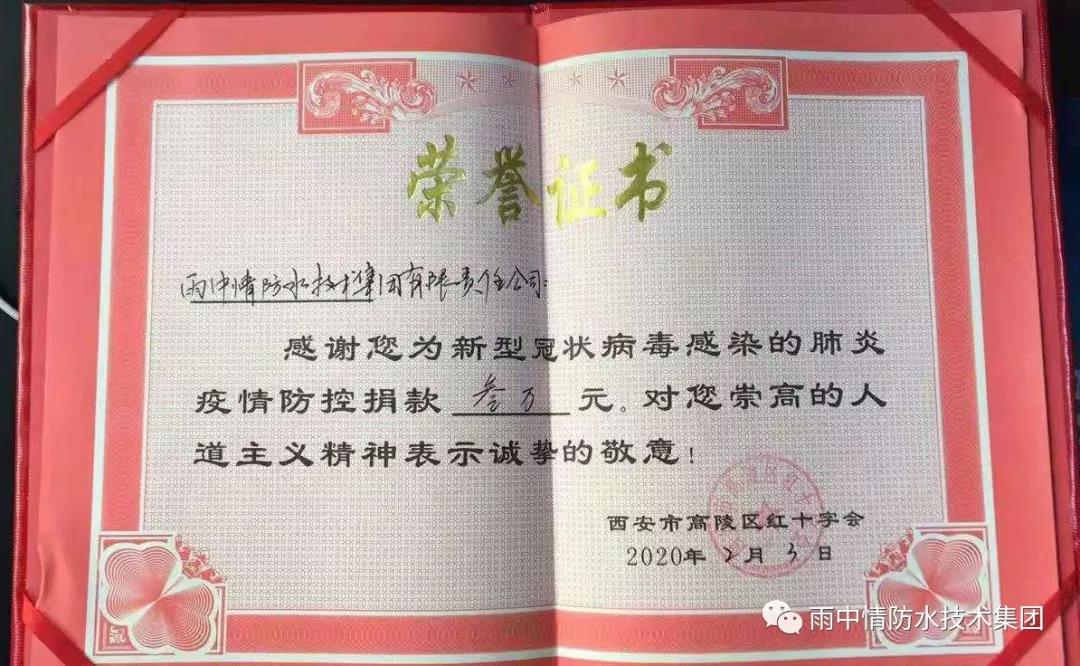 荣誉证书
雨中情防水技术集团有限责任公司：
感谢您为新型冠状病毒感染的肺炎
疫情防控捐款 叁万 元。对您崇高的人
道主义精神表示诚挚的敬意！
西安市高陵区红十字会
2020年2月3日
雨中情防水技术集团